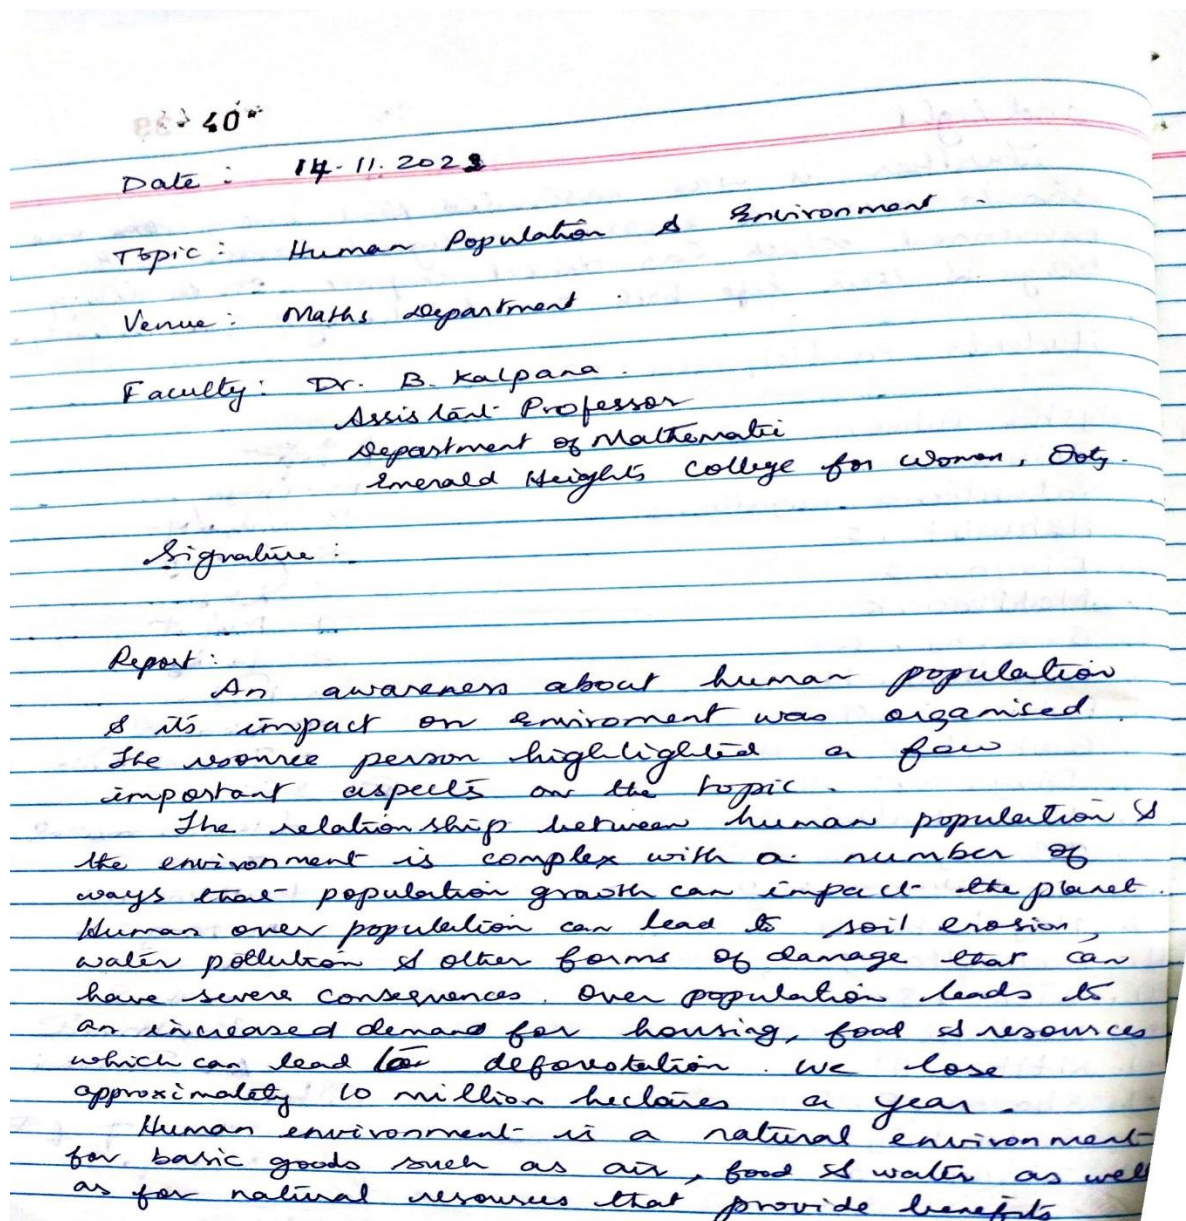 40
Date : 14.11.2023
Topic : Human Population & Environment .
Venue : Maths Department .
Faculty : Dr. B. Kalpana .
Assistant Professor
Department of Mathematic
Emerald Heights College for Women, Ooty.
Signature :
Report :
An awareness about human population
& its impact on enviroment was organised .
The resource person highlighted a few
important aspects on the topic .
The relationship between human population &
the environment is complex with a number of
ways that population growth can impact the planet .
Human over population can lead to soil erosion,
water pollution & other forms of damage that can
have severe consequences. Over population leads to
an increased demand for housing, food & resources
which can lead to deforestation . We lose
approximately 10 million hectares a year .
Human environment is a natural environment
for basic goods such as air, food & water as well
as for natural resources that provide benefits